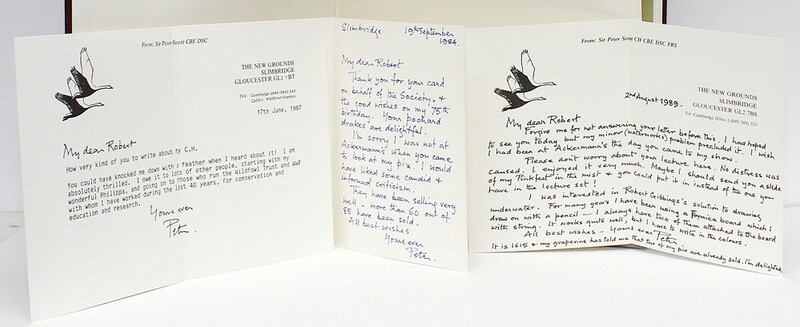 From: Sir Peter Scott CBE DSC
THE NEW GROUNDS
SLIMBRIDGE
GLOUCESTER GL2 7BT
17th June, 1987
My dear Robert
How very kind of you to write about my C.H.
You could have knocked me down with a feather when I heard about it! I am
absolutely thrilled. I owe it to lots of other people, starting with my
wonderful Philippa, and going on to those who run the Wildfowl Trust and WWF
with whom I have worked during the last 40 years, for conservation and
education and research.
Yours ever
Peter
Slimbridge 19th September
1984.
My dear Robert
Thank you for your card
on behalf of the Society, &
the good wishes on my 75th
birthday. Your pochard
drakes are delightful.
I'm sorry I was not at
Ackermann's when you came
to look at my pix. I would
have liked some candid &
informed criticism.
They have been selling very
well - more than 60 out of
88 have been sold.
All best wishes
Yours ever
Peter.
From: Sir Peter Scott CH CBE DSC FRS
THE NEW GROUNDS
SLIMBRIDGE
GLOUCESTER GL2 7BS
2nd August 1989.
My dear Robert
Forgive me for not answering your letter before this. I had hoped
to see you today but my minor (waterworks) problem precluded it. I wish
I had been at Ackermann's the day you came to my show.
Please don't worry about your lecture here. No distress was
caused. I enjoyed it very much. Maybe I should send you a slide
of my Pinkfeet in the mist & you could put it in instead of the one you
have in the lecture set!
I was interested in Robert Gibbings's solution to drawing
underwater. For many years I have been using a Formica board which I
draw on with a pencil - I always have two of them attached to the board
with string. It works quite well, but I have to write in the colours.
All best wishes - Yours ever Peter
It is 1615 & my grapevine has told me that two of my pix are already sold. I'm delighted